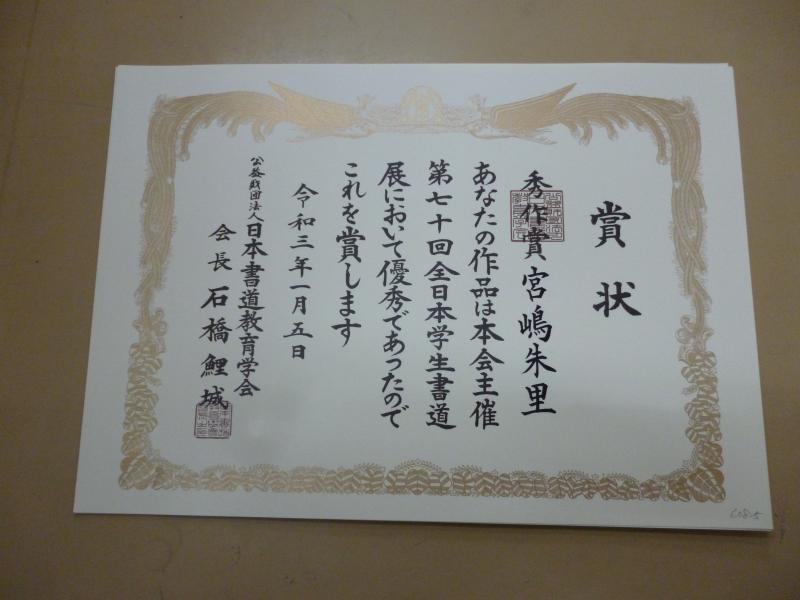 賞状
秀作賞 宮嶋朱里
あなたの作品は本会主催
第七十回全日本学生書道
展において優秀であったので
これを賞します
令和三年一月五日
公益財団法人日本書道教育学会
会長 石橋鯉城